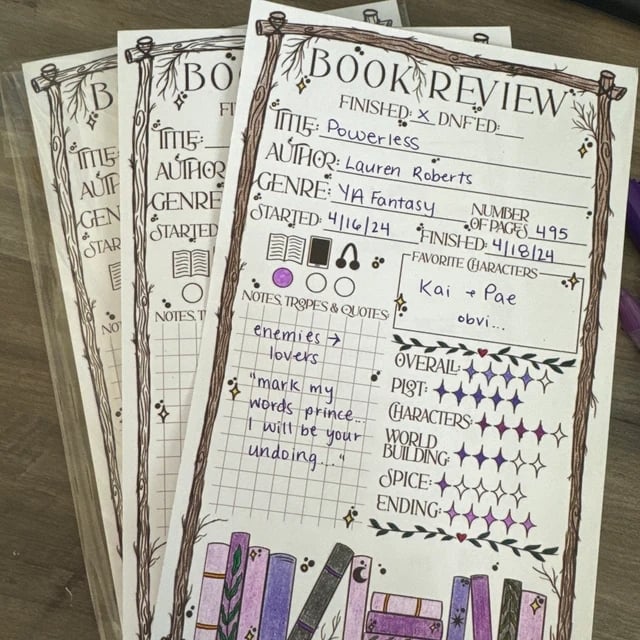 BOOK REVIEW
FINISHED: X DNF'ED:
TITLE: Powerless
AUTHOR: Lauren Roberts
GENRE: YA Fantasy
NUMBER OF PAGES 495
STARTED: 4/16/24 FINISHED: 4/18/24
FAVORITE CHARACTERS
Kai + Pae
obvi...
NOTES, TROPES & QUOTES:
enemies →
lovers
"mark my
words prince...
I will be your
undoing..."
OVERALL:
PLOT:
CHARACTERS:
WORLD
BUILDING:
SPICE:
ENDING:
BO
FI
TITLE:
AUTHOR
GENRE
STARTED
NOTES, T
B
TITLE
AUTH
GEN
STAR
NO